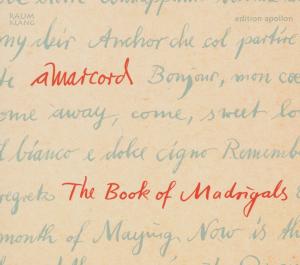 RAUM
KLANG
edition apollon
my deir Anchor che col partire
amarcord Bonjour, mon coe
ome away, come, sweet lo
il bianco e dolce cigno Rememb
regrets The Book of Madrigals
month of Maying Now is th